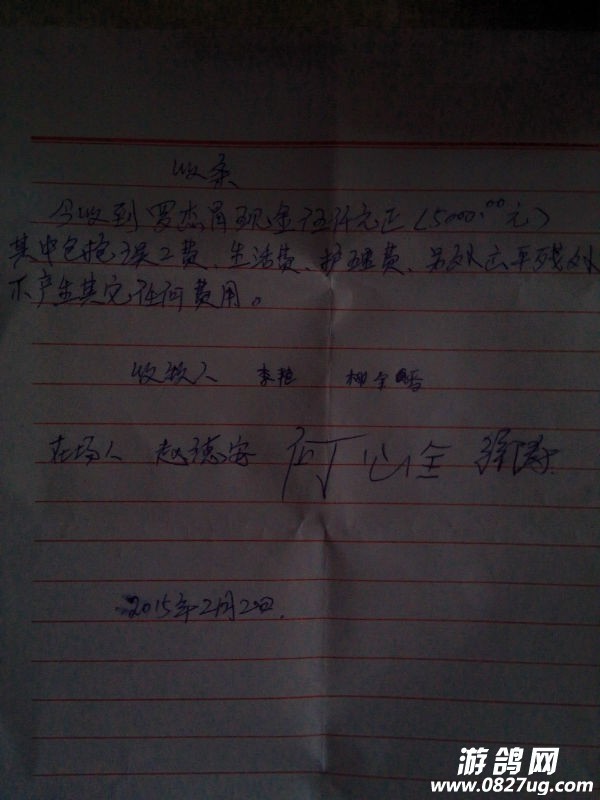 收条
今收到罗杰 现金伍仟元正(5000.00元)
其中包括误工费、生活费、护理费、另外
不产生其它任何费用。
收款人 李艳
在场人 赵德安 何公全
2015年2月2日.
游鸽网
www.0827ug.com